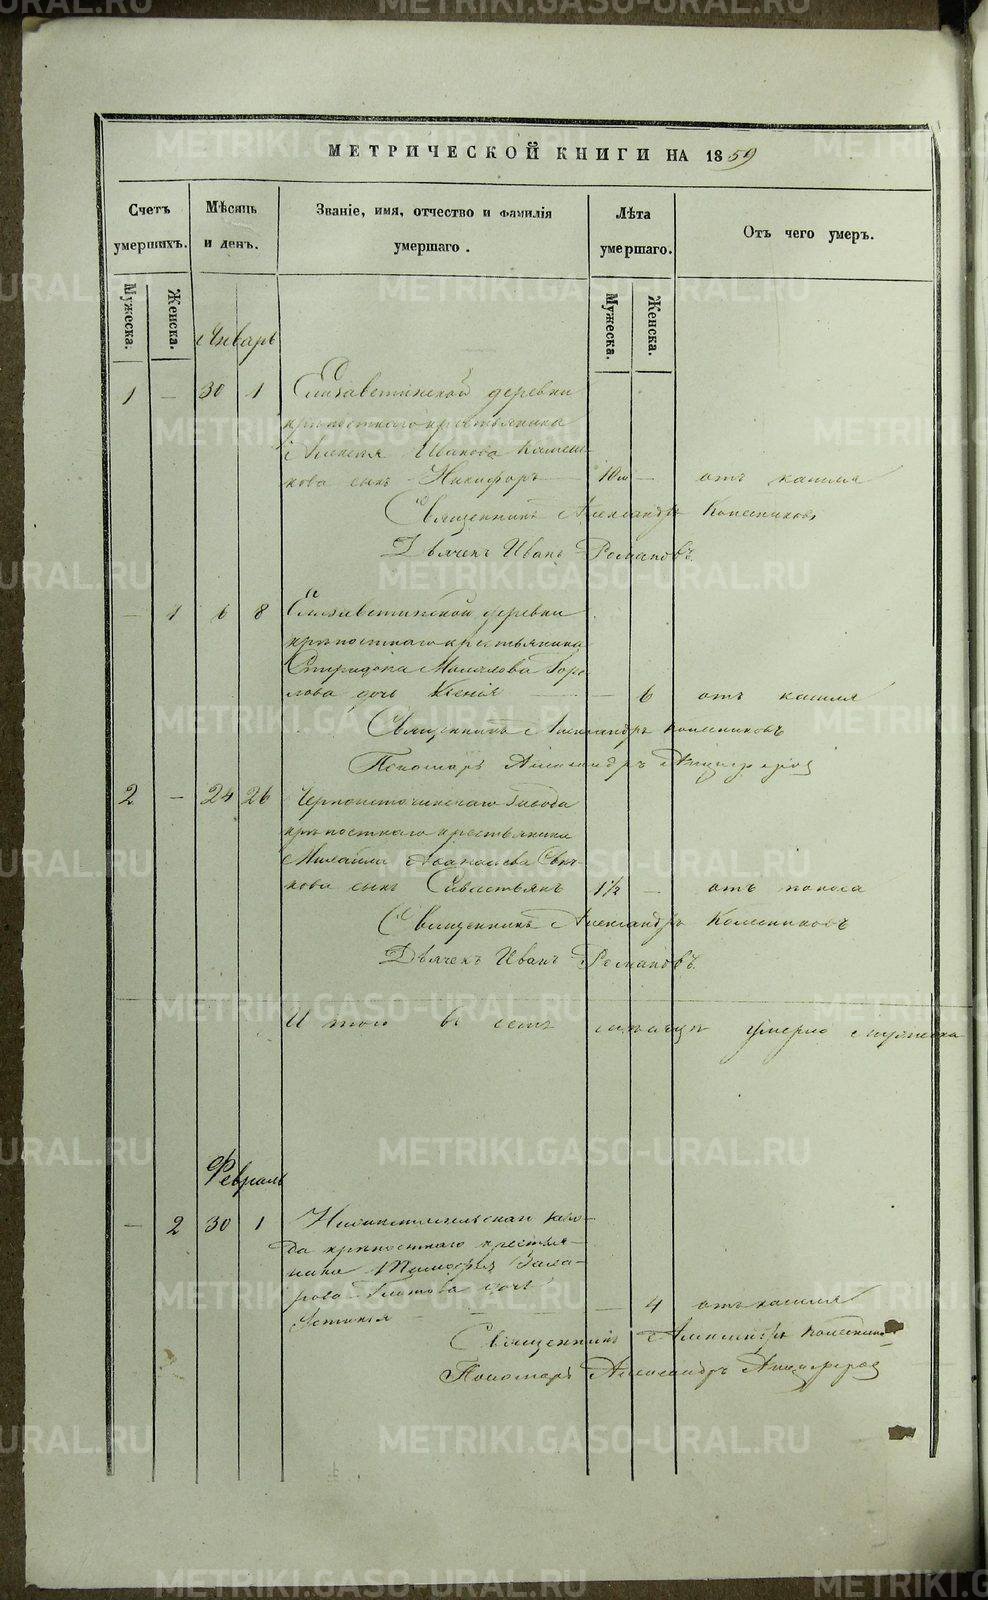 МЕТРИЧЕСКОЙ КНИГИ НА 1859
Счетъ умершихъ.
Мѣсяцъ и день.
Званіе, имя, отчество и фамилія умершаго.
Лѣта умершаго.
Отъ чего умеръ.
Мужеска.
Женска.
Мужеска.
Женска.
Январь
1 — 30 1 Елизаветинской деревни
крѣпостнаго крестьянина
Алексѣя Иванова
сынъ Никифоръ 10 — отъ кашля
Священникъ Александръ Колесниковъ
Дьячекъ Иванъ Романовъ.
— 1 6 8 Елизаветинской деревни
крѣпостнаго крестьянина
Спиридона Михайлова Горе-
лова дочь Ксенія — 6 отъ кашля
Священникъ Александръ Колесниковъ
Пономарь Александръ
2 — 24 26 Черноисточинскаго Завода
крѣпостнаго крестьянина
Михаила Афанасьева
сынъ Севастьянъ 1½ — отъ поноса
Священникъ Александръ Колесниковъ
Дьячекъ Иванъ Романовъ.
Итого въ семъ мѣсяцѣ умерло мужеска
Февраль
— 2 30 1 Нижнетагильскаго заво-
да крѣпостнаго крестья-
нина Тимофея
дочь
Устинія — 4 отъ кашля
Священникъ Александръ
Пономарь Александръ
METRIKI.GASO-URAL.RU